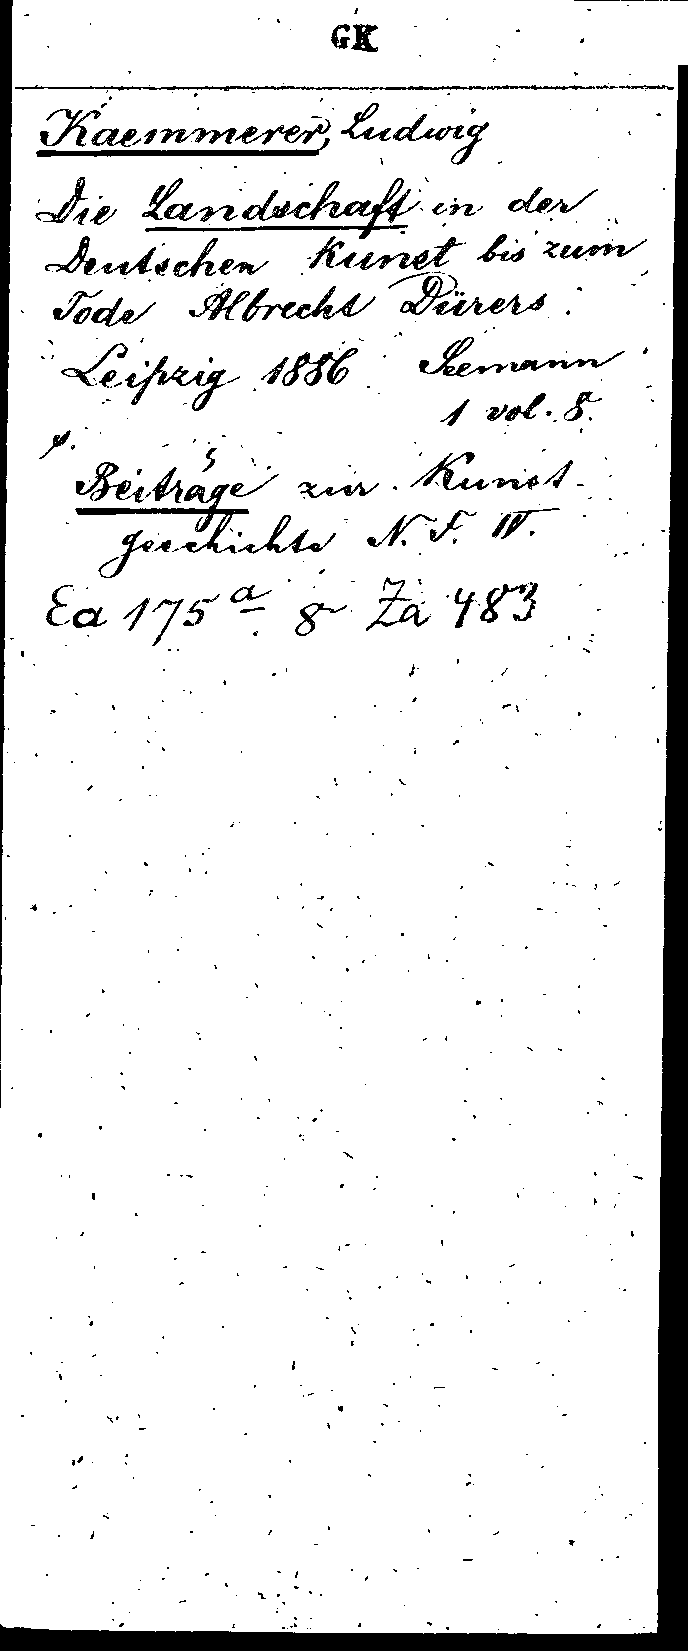 GK
Kaemmerer, Ludwig
Die Landschaft in der
Deutschen Kunst bis zum
Tode Albrecht Dürers.
Leipzig 1886 Seemann
1 vol. 8.
Beiträge zur Kunst-
geschichte N. F. IV.
Ea 175 a 8 Za 483